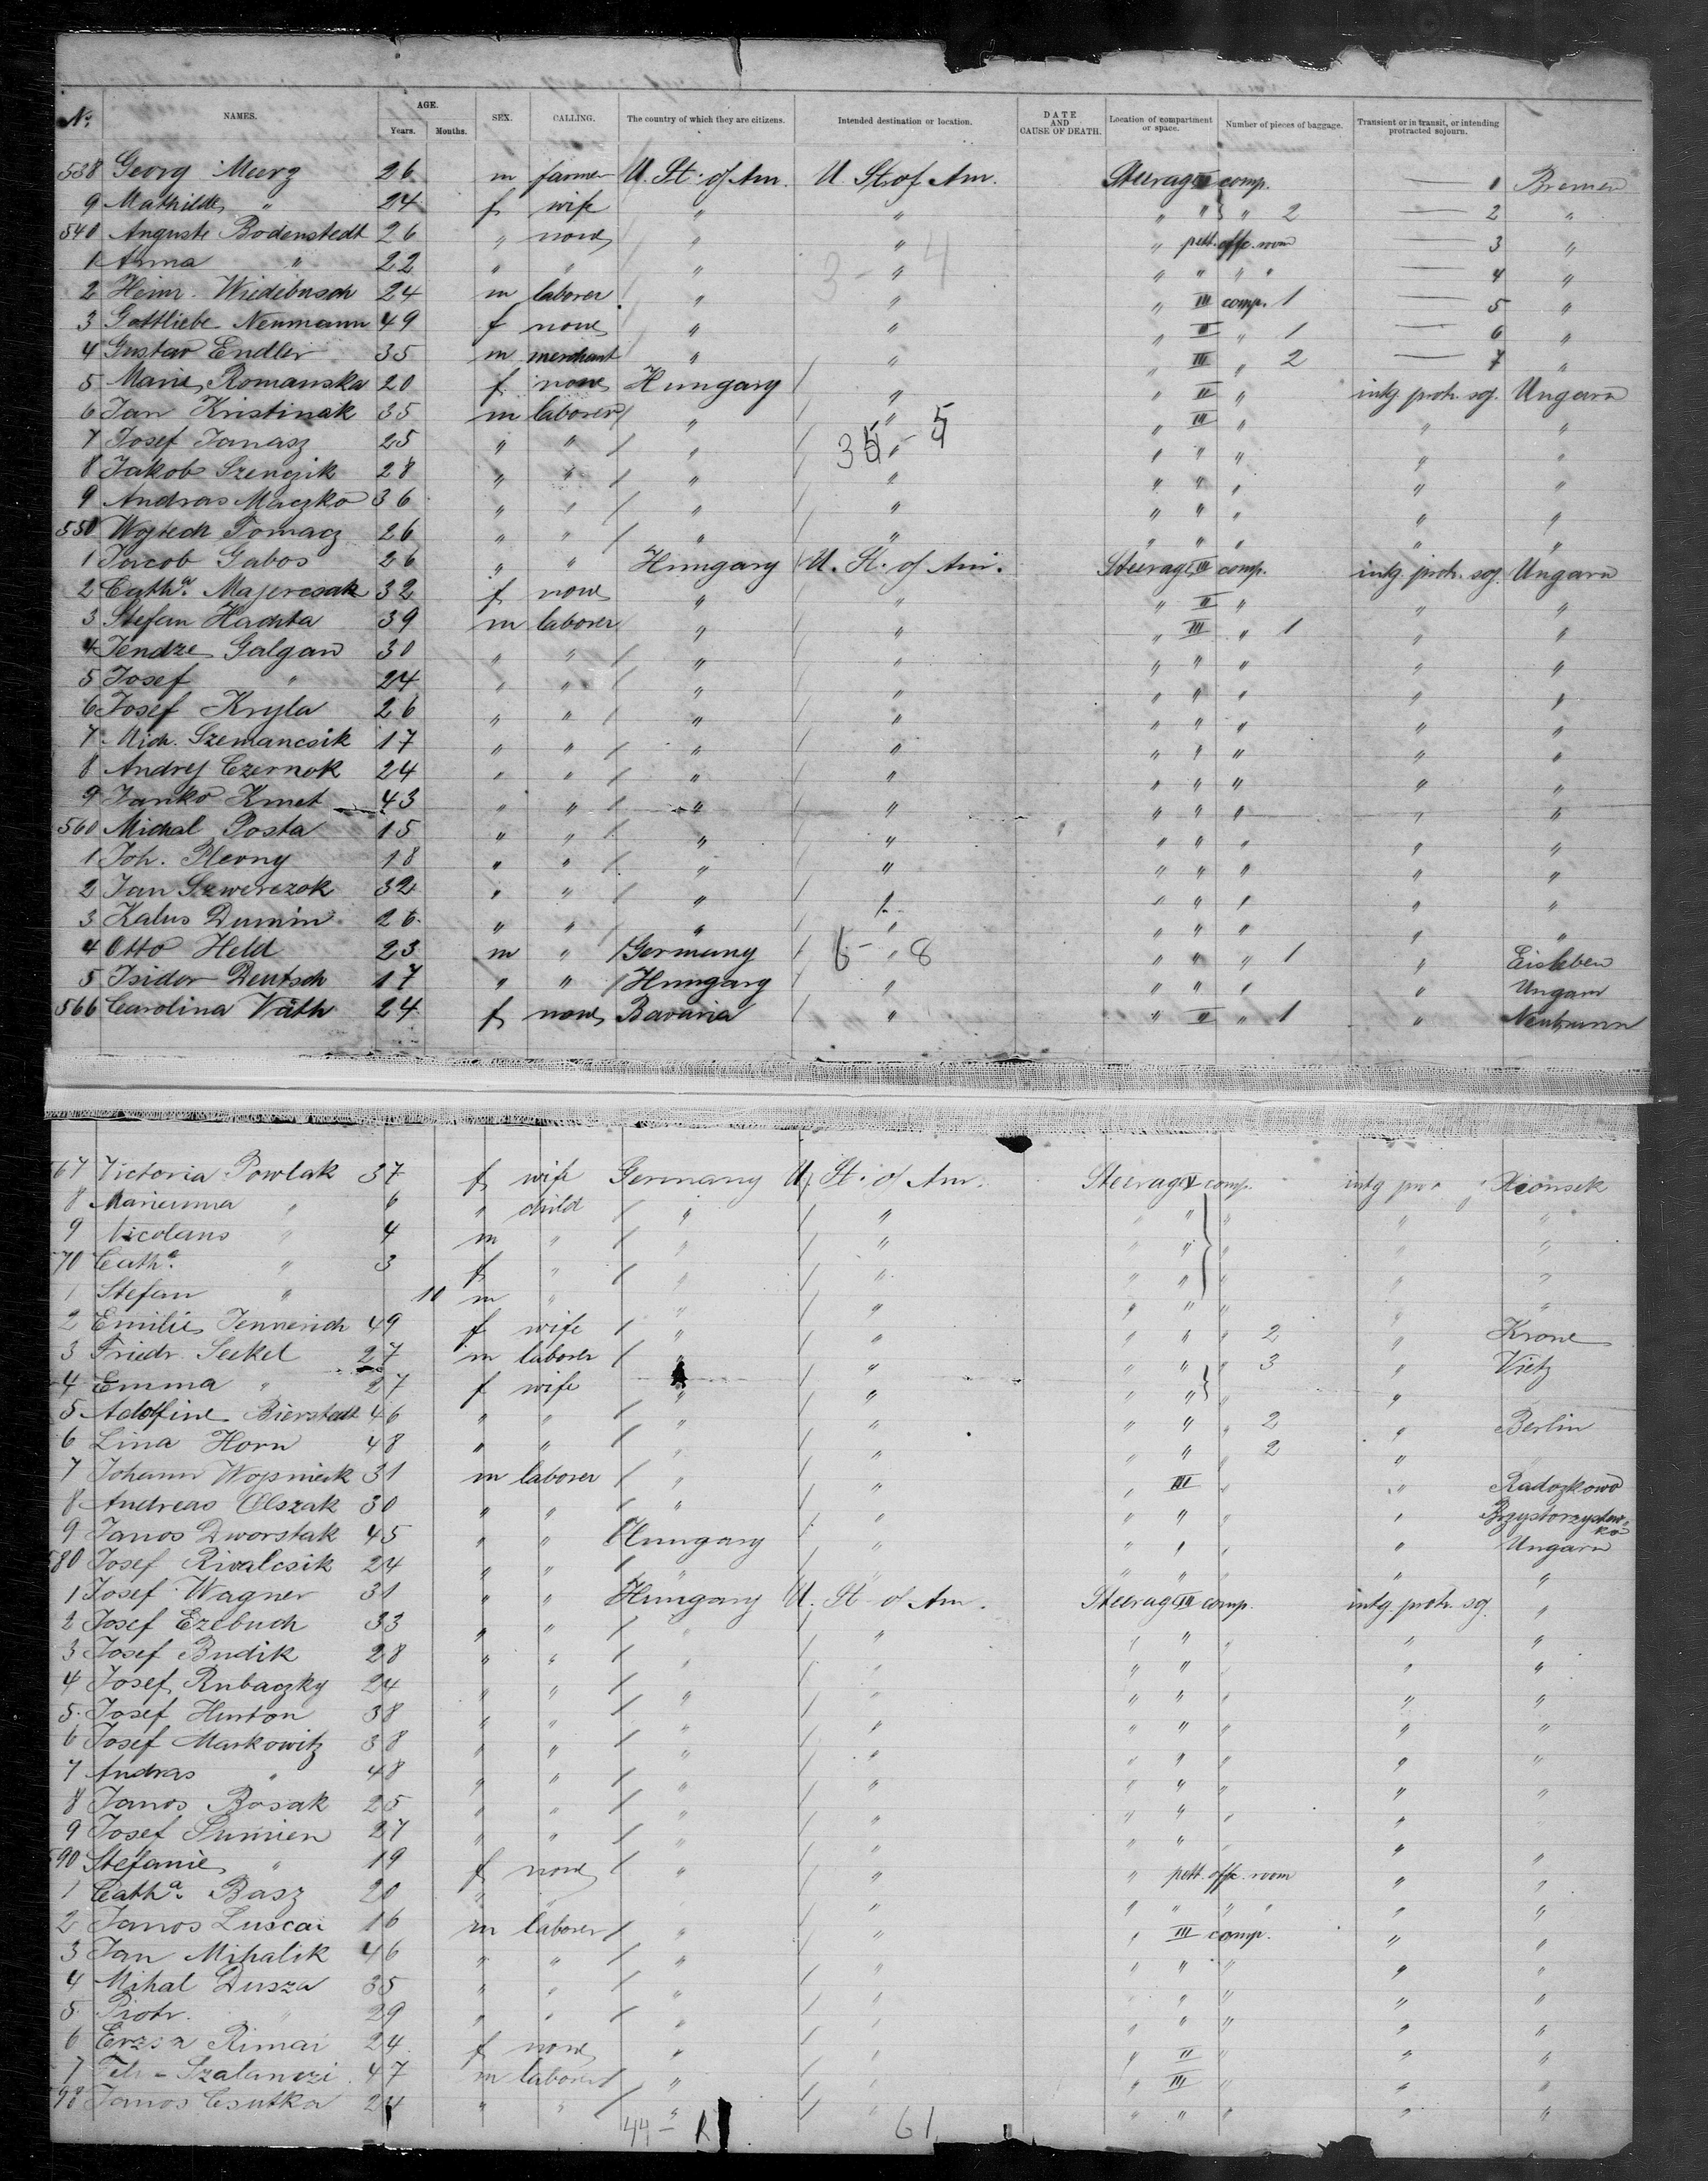 No. NAMES. AGE. Years. Months. SEX. CALLING. The country of which they are citizens. Intended destination or location. DATE AND CAUSE OF DEATH. Location of compartment or space. Number of pieces of baggage. Transient or in transit, or intending protracted sojourn.
538 Georg Merz 26 m farmer U. St. of Am. U. St. of Am. Steerage III comp. — 1 Bremen
9 Mathilde " 24 f wife " " " " } " 2 — 2 "
540 Auguste Bodenstedt 26 " none " " " pett. offc. room — 3 "
1 Anna " 22 " " " " " " " " — 4 "
2 Heinr. Wiedebusch 24 m laborer " " " III comp. 1 — 5 "
3 Gottliebe Neumann 49 f none " " " II " 1 — 6 "
4 Gustav Endler 35 m merchant " " " III " 2 — 7 "
5 Marie Romanska 20 f none Hungary " " II " intg. protr. soj. Ungarn
6 Jan Kristinak 35 m laborer " " " III " " "
7 Josef Janasz 25 " " " " " " " " "
8 Jakob Szenczik 28 " " " " " " " " "
9 Andras Maczko 36 " " " " " " " " "
550 Wojtech Tomacz 26 " " " " " " " " "
1 Jacob Gabos 26 " " Hungary U. St. of Am. Steerage III comp. intg. protr. soj. Ungarn
2 Catha. Majercsak 32 f none " " " II " " "
3 Stefan Hachta 39 m laborer " " " III " 1 " "
4 Jendze Galgan 30 " " " " " " " " "
5 Josef " 24 " " " " " " " " "
6 Josef Kryla 26 " " " " " " " " "
7 Mich. Szemancsik 17 " " " " " " " " "
8 Andrej Czernok 24 " " " " " " " " "
9 Janko Kmet 43 " " " " " " " " "
560 Michal Posta 15 " " " " " " " " "
1 Joh. Plevny 18 " " " " " " " " "
2 Jan Szwerczok 32 " " " " " " " " "
3 Kalus Dumin 26 " " " " " " " " "
4 Otto Held 23 m " Germany " " " " 1 " Eisleben
5 Isidor Deutsch 17 " " Hungary " " " " " Ungarn
566 Carolina Väth 24 f none Bavaria " " II " 1 " Neubrunn
67 Victoria Powlak 37 f wife Germany U. St. of Am. Steerage II comp. intg Xionsek
8 Marianna " 6 " child " " " " " " "
9 Nicolaus " 4 m " " " " " " " "
70 Catha. " 3 f " " " " " " " "
1 Stefan " 10 m " " " " " " " "
2 Emilie Jennerich 49 f wife " " " " " 2 " Krone
3 Friedr. Seekel 27 m laborer " " " " " 3 " Vietz
4 Emma " 27 f wife " " " " " "
5 Adolfine Bierstedt 46 " " " " " " " 2 " Berlin
6 Lina Horn 48 " " " " " " " 2 " "
7 Johann Wojsnieck 31 m laborer " " " III " " Radozkowo
8 Andreas Olszak 30 " " " " " " " " Przystorzystewko
9 Janos Dworstak 45 " " Hungary " " " " " Ungarn
580 Josef Rivalcsik 24 " " " " " " " " "
1 Josef Wagner 31 " " Hungary U. St of Am. Steerage III comp. intg. protr. soj. "
2 Josef Ezebuch 33 " " " " " " " " "
3 Josef Budik 28 " " " " " " " " "
4 Josef Rubaczky 24 " " " " " " " " "
5 Josef Hurton 38 " " " " " " " " "
6 Josef Markowitz 38 " " " " " " " " "
7 Andras " 48 " " " " " " " " "
8 Janos Bosak 25 " " " " " " " " "
9 Josef Sumien 27 " " " " " " " " "
590 Stefanie " 19 f none " " " pett. offc. room " "
1 Catha. Basz 20 " " " " " " " " " "
2 Janos Luscai 16 m laborer " " " III comp. " "
3 Jan Mihalik 46 " " " " " " " " "
4 Mihal Dusza 35 " " " " " " " " "
5 Piotr. " 29 " " " " " " " " "
6 Erzsa Rimai 24 f none " " " II " " "
7 Szalanczi 47 m laborer " " " III " " "
98 Janos Csutka 24 " " " " " " " " "
44 - 61